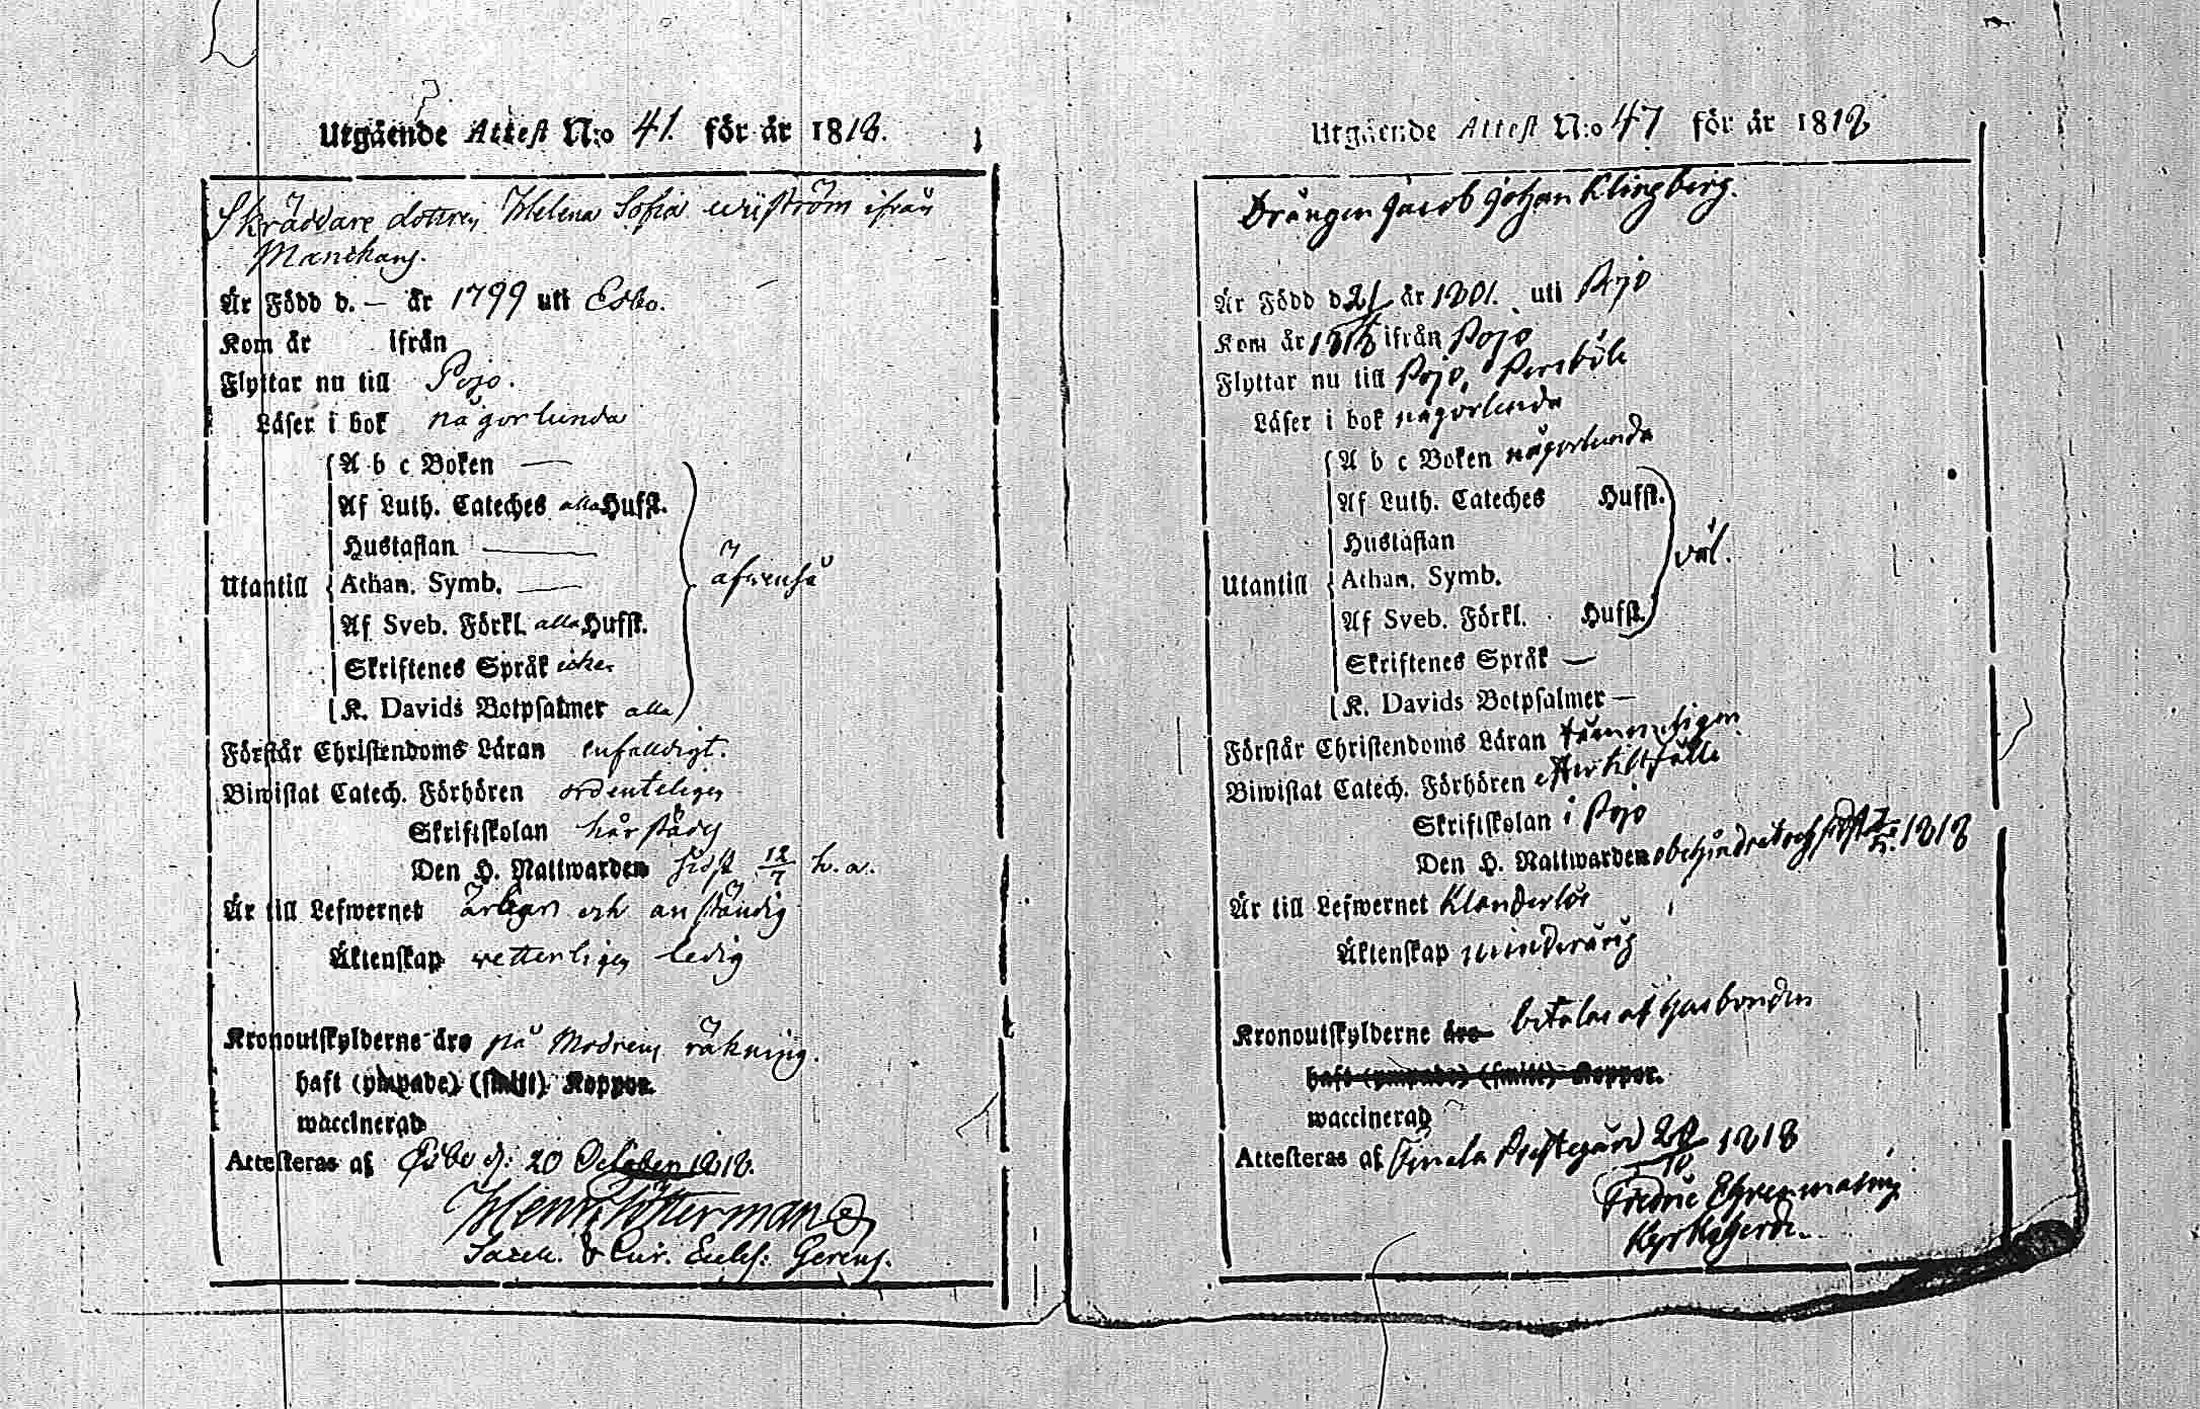 Utgående Attest N:o 41. för år 1818.
Skräddare dottren Helena Sofia Wiström ifrån
Manskans.
Är Född d. — år 1799 uti Esbo.
Kom år ifrån
Flyttar nu till Pojo.
Läser i bok någorlunda
A b c Boken —
Af Luth. Cateches alla Hufst.
Hustaflan —
Utantill Athan. Symb. — äfvenså
Af Sveb. Förkl. alla Hufst.
Skriftenes Språk icke.
K. Davids Botpsalmer alla
Förstår Christendoms Läran enfaldigt.
Biwistat Catech. Förhören ordenteligen
Skriftskolan härstädes
Den H. Nattwarden sidst 12/7 h. a.
Är till Lefwernet ärbar och anständig
Äktenskap vetterligen ledig
Kronoutskylderne äro på Modrens räkning.
haft (ympade) (smitt) Koppor.
waccinerad
Attesteras af d. 20 October 1818.
Henr. Tötterman
Sacell. & Cur. Eccles. Gerens.
Utgående Attest N:o 47 för år 1818
Drängen Jacob Johan Klingberg.
Är Född d 21 år 1801. uti Pojo
Kom år ifrån Pojo
Flyttar nu till Pojo, Persböle
Läser i bok någorlunda
A b c Boken någorlunda
Af Luth. Cateches Hufst.
Hustaflan väl.
Utantill Athan. Symb.
Af Sveb. Förkl. Hufst.
Skriftenes Språk —
K. Davids Botpsalmer —
Förstår Christendoms Läran
Biwistat Catech. Förhören efter tillfälle
Skriftskolan i Pojo
Den H. Nattwarden obehindrat och sidst 1818
Är till Lefwernet Klanderlös
Äktenskap minderårig
Kronoutskylderne äro betalas af Husbonden
haft (ympade) (smitt) Koppor.
waccinerad
Attesteras af Tenala Prestegård 28/10 1818
Fredric Ehrenmalm
Kyrkoherde.